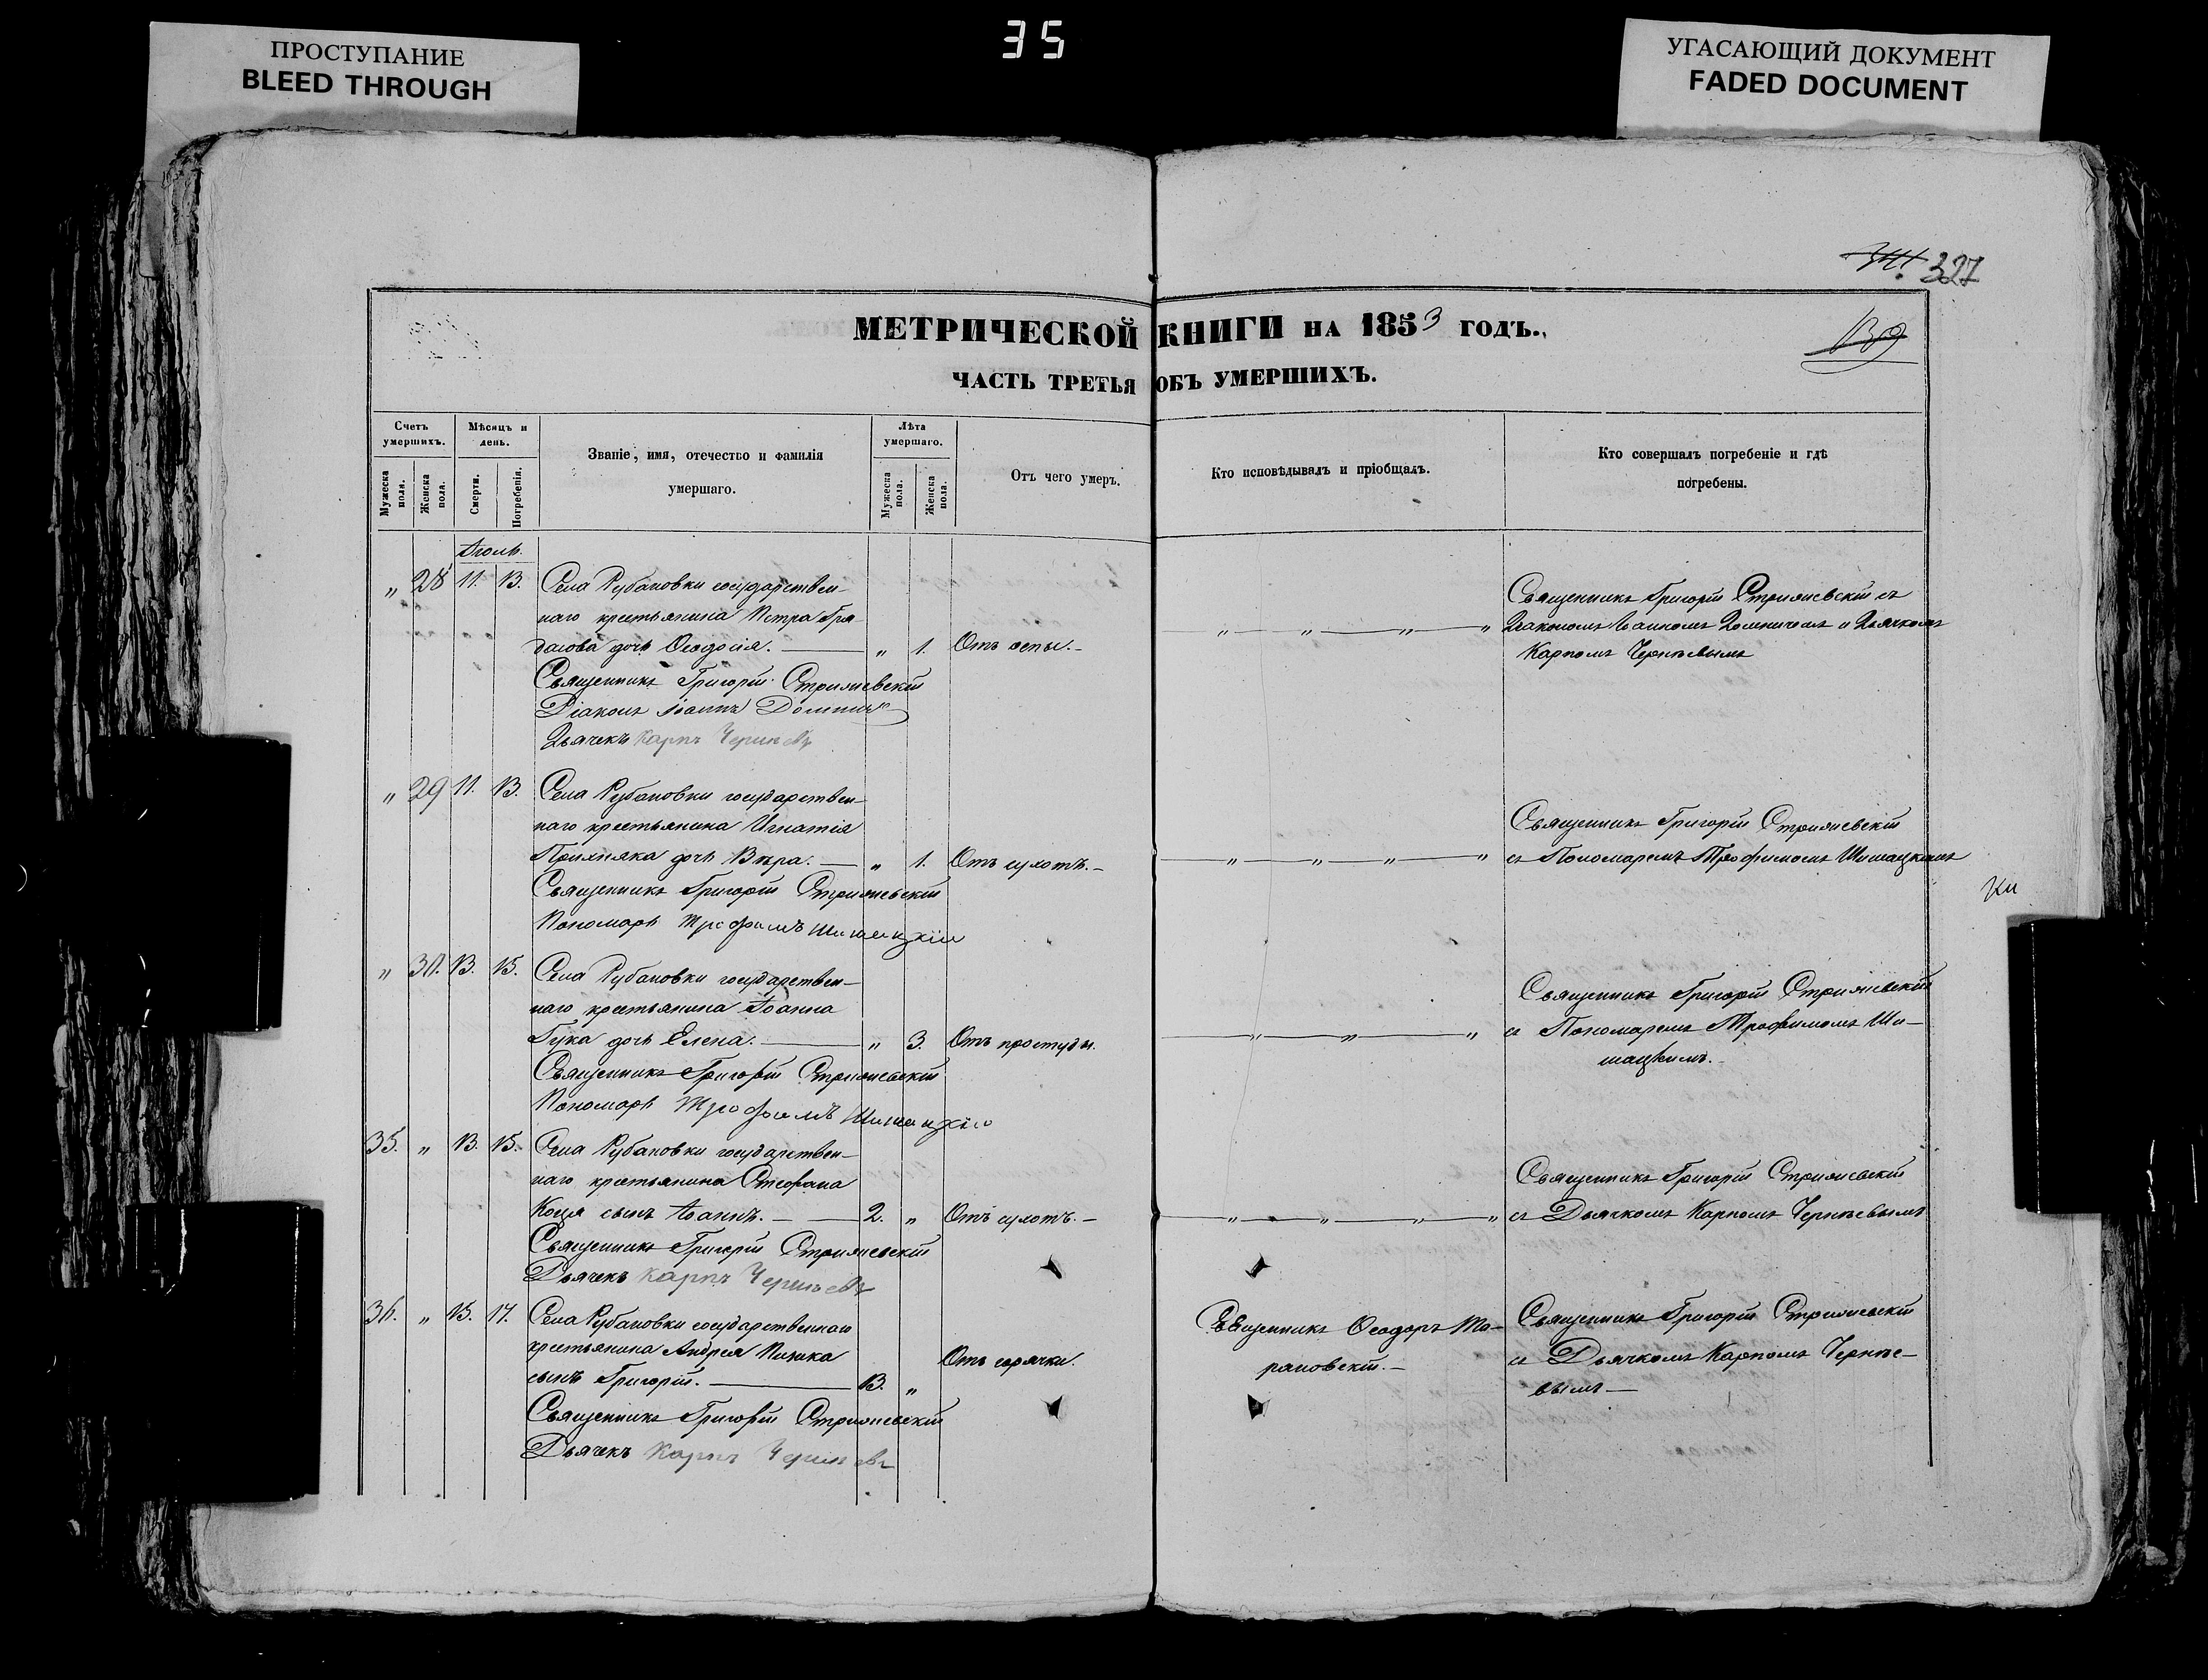 35
ПРОСТУПАНИЕ
BLEED THROUGH
УГАСАЮЩИЙ ДОКУМЕНТ
FADED DOCUMENT
327
139
МЕТРИЧЕСКОЙ КНИГИ НА 1853 ГОДЪ.
ЧАСТЬ ТРЕТЬЯ ОБЪ УМЕРШИХЪ.
Счетъ умершихъ.
Мужеска пола.
Женска пола.
Мѣсяцъ и день.
Смерти.
Погребенія.
Званіе, имя, отечество и фамилія умершаго.
Лѣта умершаго.
Мужеска пола.
Женска пола.
Отъ чего умеръ.
Кто исповѣдывалъ и пріобщалъ.
Кто совершалъ погребеніе и гдѣ погребены.
„ 28 11. 13. Села Рубановки государствен-
наго крестьянина Петра
дочь Ѳеодосія. — „ 1. Отъ оспы.-
„ — „ — „ — „
Священникъ Григорій Стрижевскій съ
Діакономъ Іоанномъ и Дьячкомъ
Карпомъ Чернѣевымъ
Священникъ Григорій Стрижевскій
Діаконъ Іоаннъ
Дьячекъ Карпъ Чернѣевъ
„ 29 11. 13. Села Рубановки государствен-
наго крестьянина Игнатія
дочь Вѣра. — „ 1. Отъ сухотъ.-
— „ — „ — „ — „
Священникъ Григорій Стрижевскій
съ Пономаремъ Трофимомъ Шишацкимъ
Священникъ Григорій Стрижевскій
Пономарь Трофимъ Шишацкій
„ 30. 13. 15. Села Рубановки государствен-
наго крестьянина Іоанна
Гука дочь Елена. — „ 3. Отъ простуды.
— „ — „ — „
Священникъ Григорій Стрижевскій
съ Пономаремъ Трофимомъ Ши-
шацкимъ.-
Священникъ Григорій Стрижевскій
Пономарь Трофимъ Шишацкій
35. „ 13. 15. Села Рубановки государствен-
наго крестьянина Стефана
Коця сынъ Іоаннъ. — 2. „ Отъ сухотъ.-
— „ — „ — „ — „
Священникъ Григорій Стрижевскій
съ Дьячкомъ Карпомъ Чернѣевымъ
Священникъ Григорій Стрижевскій
Дьячекъ Карпъ Чернѣевъ
36. „ 15. 17. Села Рубановки государственнаго
крестьянина Андрея
сынъ Григорій. — 13. „
Отъ горячки.
Священникъ Ѳеодоръ Та-
рановскій.-
Священникъ Григорій Стрижевскій
съ Дьячкомъ Карпомъ Чернѣе-
вымъ —
Священникъ Григорій Стрижевскій
Дьячекъ Карпъ Чернѣевъ